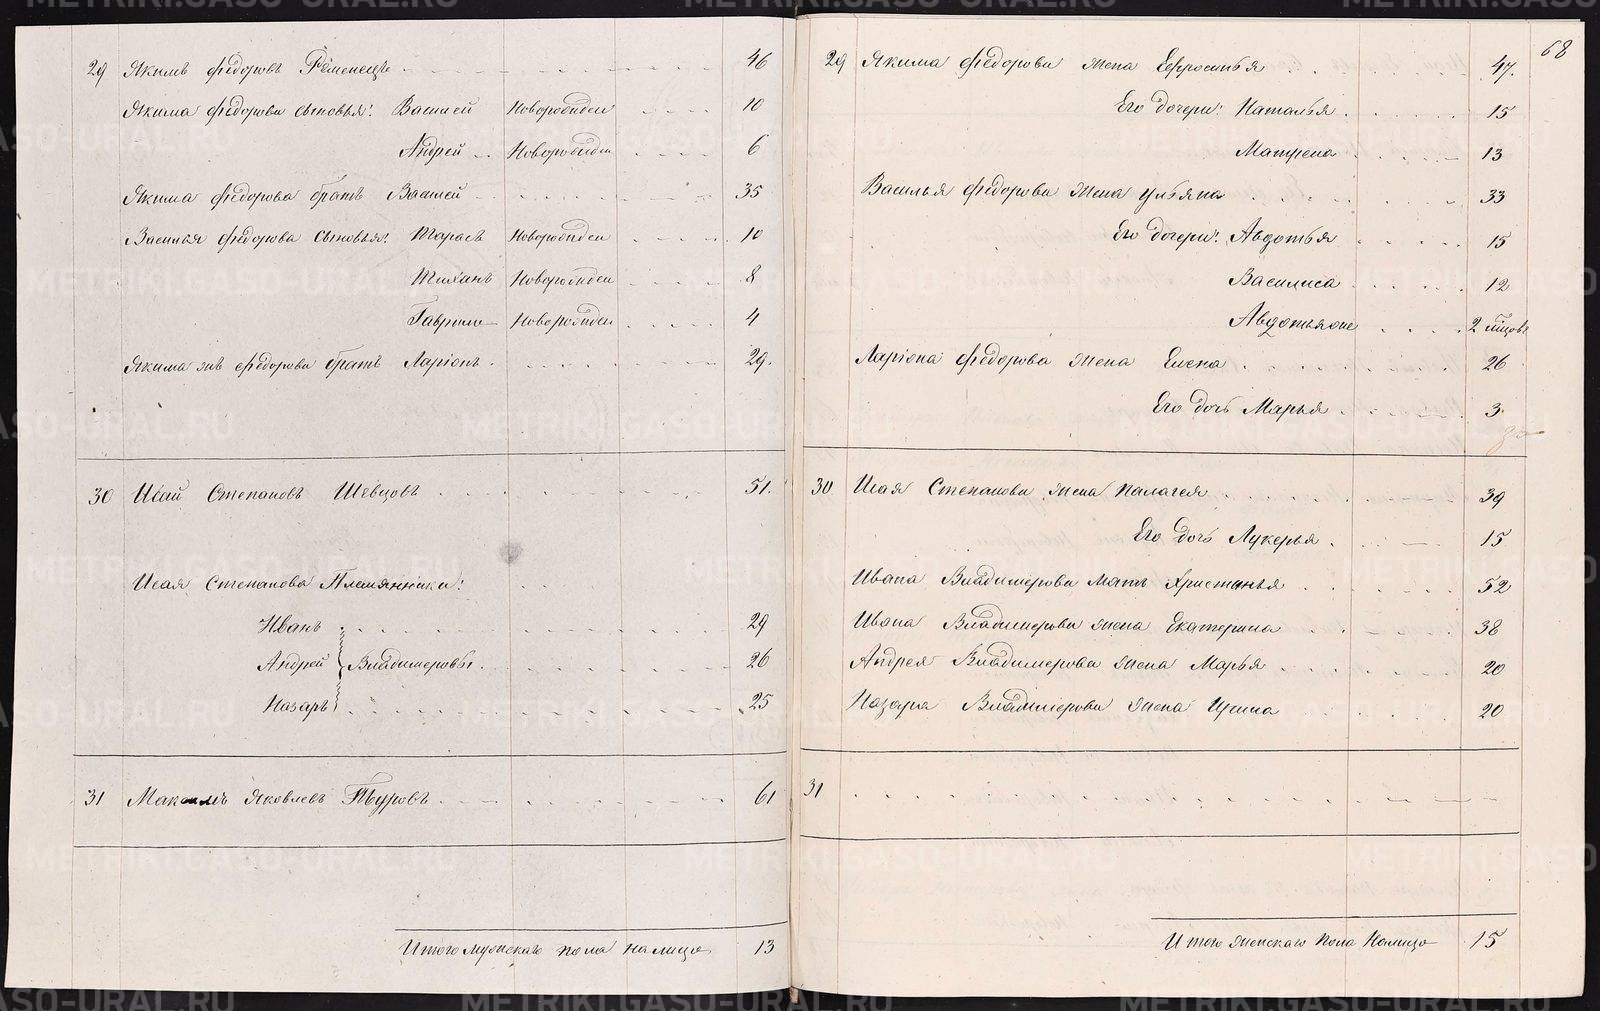 68
29 Якимъ Федоровъ Ременецъ 46
Якима Федорова сыновья: Василей Новорожден 10
Андрей Новорожден 6
Якима Федорова братъ Василей 35
Василья Федорова сыновья: Тарасъ Новорожден 10
Тиханъ Новорожден 8
Гаврило Новорожден 4
Якима же Федорова братъ Ларіонъ 29.
30 Исай Степановъ Шевцовъ 51.
Исая Степанова Племянники:
Иванъ 29
Андрей Владимеровы 26
Назаръ 25
31 Максимъ Яковлевъ Туровъ 61
Итого мужскаго пола на лицо 13
29 Якима Федорова жена Ефросинья 47.
Его дочери: Наталья 15
Матрена 13
Василья Федорова жена Ульяна 33
Его дочери: Авдотья 15
Василиса 12
Авдотья же 2
Ларіона Федорова жена Елена 26
Его дочь Марья 3.
30 Исая Степанова жена Палагея 39
Его дочь Лукерья 15
Ивана Владимерова мать Христинья 52
Ивана Владимерова жена Екатерина 38
Андрея Владимерова жена Марья 20
Назара Владимерова жена Ирина 20
31
Итого женскаго пола на лицо 15
METRIKI.GASO-URAL.RU